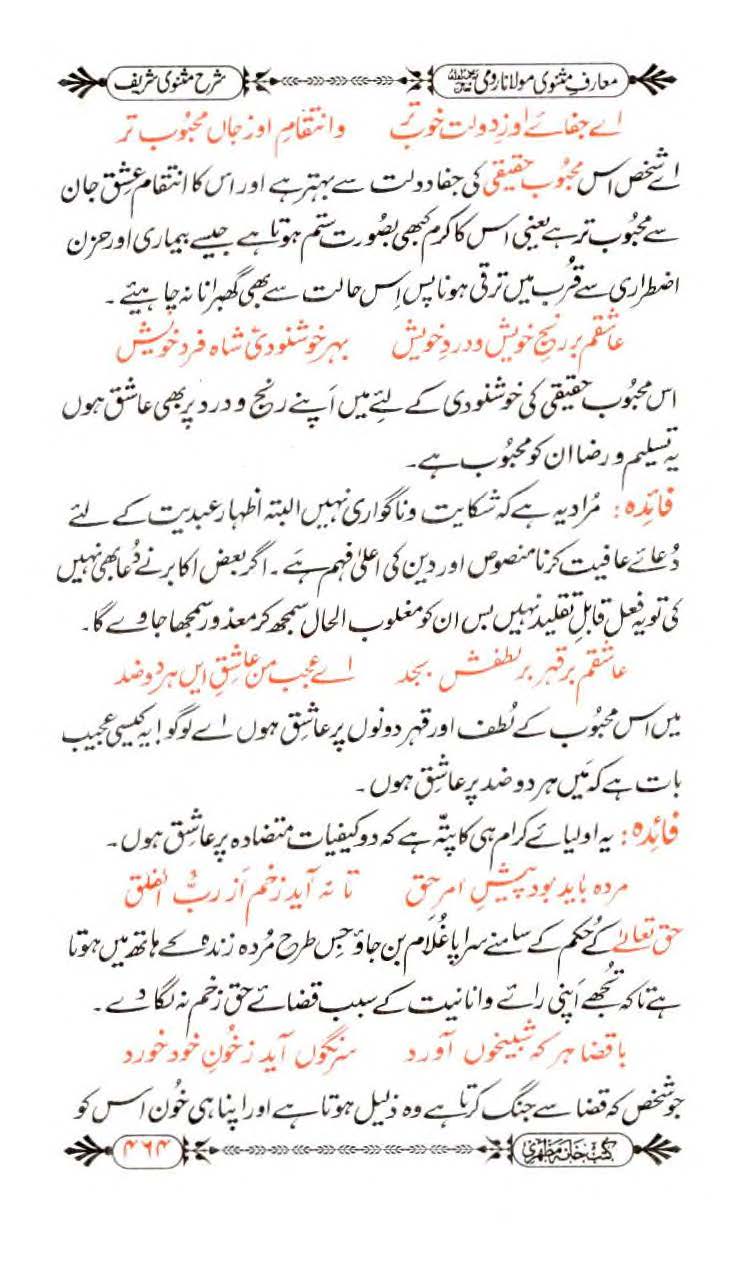 معارفِ مثنوی مولانا رومی رحمۃ اللہ تعالیٰ علیہ شرح مثنوی شریف
اے جفائے اوز دولت خوب تر وانتقامِ اوز جاں محبوب تر
اے شخص اس محبوبِ حقیقی کی جفا دولت سے بہتر ہے اور اس کا انتقامِ عشق جان
سے محبوب تر ہے یعنی اس کا کرم کبھی بصُورت ستم ہوتا ہے جیسے بیماری اور حزن
اضطراری سے قُرب میں ترقی ہونا پس اِس حالت سے بھی گھبرانا نہ چاہیئے ۔
عاشقم بر رنجِ خویش و دردِ خویش بہر خوشنودیٔ شاہ فرد خویش
اس محبُوب حقیقی کی خوشنودی کے لئے میں اَپنے رنج و درد پر بھی عاشق ہوں
یہ تسلیم و رضا ان کو محبُوب ہے۔
فائِدہ: مُراد یہ ہے کہ شکایت و ناگواری نہیں البتہ اظہارِ عبدیت کے لئے
دُعائے عافیت کرنا منصوص اور دین کی اعلیٰ فہم ہے ۔ اگر بعض اکابر نے دُعا بھی نہیں
کی تو یہ فعل قابلِ تقلید نہیں بس ان کو مغلوب الحال سمجھ کر معذور سمجھا جاوے گا۔
عاشقم بر قہر بر لطفش بجد اے عجب من عاشقِ ایں ہر دو ضد
میں اس محبُوب کے لُطف اور قہر دونوں پر عاشِق ہوں اے لوگو! یہ کیسی عجیب
بات ہے کہ مَیں ہر دو ضد پر عاشِق ہوں ۔
فائِدہ: یہ اولیائے کرام ہی کا پتّہ ہے کہ دو کیفیات متضادہ پر عاشِق ہوں۔
مردہ باید بود پیشِ امرِ حق تا نہ آید زخم اَز ربُّ الفلق
حق تعالےٰ کے حُکم کے سامنے سراپا غُلام بن جاؤ جِس طرح مُردہ زندہ کے ہاتھ میں ہوتا
ہے تاکہ تُجھے اَپنی رائے و انانیت کے سبب قضائے حق زخم نہ لگا دے۔
باقضا ہر کہ شبیخوں آورد سرنگوں آید زخُونِ خود خورد
جو شخص کہ قضا سے جنگ کرتا ہے وہ ذلیل ہوتا ہے اور اپنا ہی خُون اس کو
کتب خانہ مظہری ۴۶۴